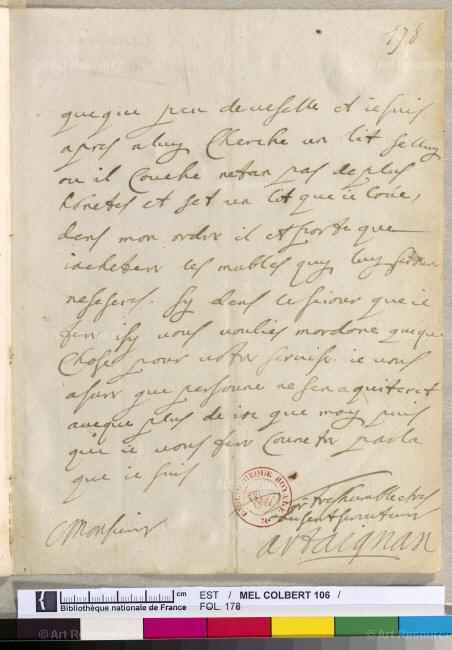 178
queque peu deveselle et ie suis
apres a luy Cherche un lit seluy
ou il Couche netan pas de plus
honetes et set un lit que ie loue,
dens mon ordre il et porte que
iacheteré les mubles quy luy seron
neseseres. Sy dens le seiour que ie
feré isy vous voulies mordoné queque
Chose pour votre servise ie vous
asure que persoune ne sen aquiteret
aveque plus de ioie que moy puis
que ie vous feré Counetre par la
que ie suis
Monsieur
Vor. treshumble et tres
obeisent serviteur
artaignan
BIBLIOTHEQUE ROYALE
cm
Bibliothèque nationale de France
EST / MEL COLBERT 106 /
FOL. 178
© Art Resource
© Art Resource
© Art Resource